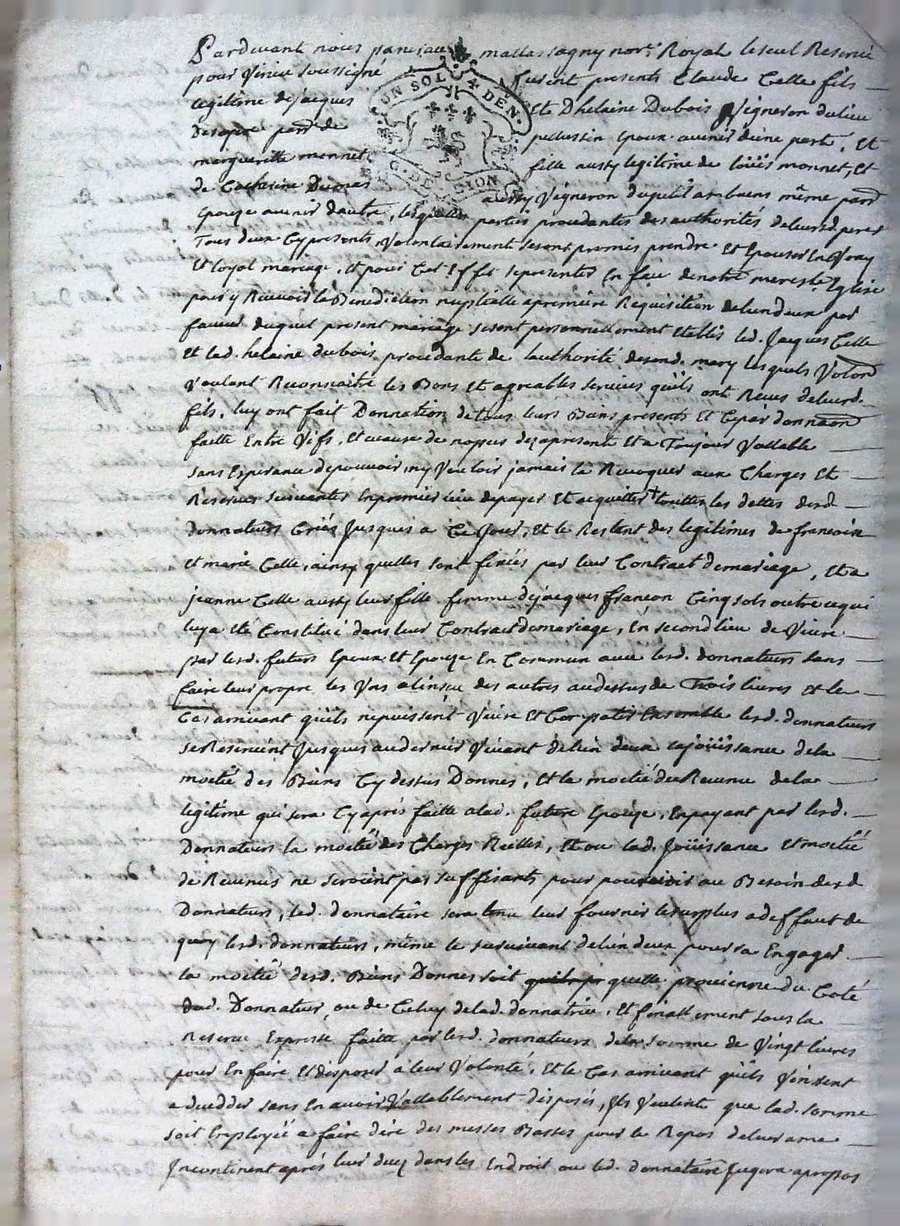 Pardevant nous mattassagny nore. Royal le seul Reservé
pour Virieu soussigné furent presents Claude Celle fils
legitime de jacques Et D'helaine Dubois Vigneron du lieu
UN SOL 4 DEN.
G. DE LYON
par. de pellussin Epoux avenir d'une part, Et
marguerite monnet fille aussy legitime de loüis monnet, Et
de Catherine aussy Vigneron même par.
Epouze avenir d'autre, lesquelles parties procedantes des authorités de leurs d. peres
Tous deux Cy presents Volontairement se sont promis prendre Et Epouser En Vray
Et loyal mariage, Et pour Cet Effet se presenter En face de notre mere ste. Eglise
pour y Recevoir la Benediction nuptialle a premiere Requisition de lun deux par
faveur duquel present mariage se sont personnellement Etablis led. Jaques Celle
Et lad. helaine dubois, procedante de l'authorité de sond. mary lesquels Volont
Voulant Reconnaitre les Bons Et agreables services qu'ils ont Reçus de leurd.
fils, luy ont fait Donnation de tous leurs Biens presents Et par donnaon
faitte Entre Vifs, Et a cause de nopces des apresent Et a Toujour Vallable
sans Esperance de pouvoir ny Vouloir jamais la Revoquer aux Charges Et
Reserves suivantes En premier lieu de payer Et acquitter touttes les dettes desd.
donnateurs Créés Jusques a Ce Jour, Et le Restant des legitimes de francoise
Et marie Celle, ainsy quelles sont fixées par leur Contract de mariage, Et a
jeanne Celle aussy leur fille femme de jacques francon Cinq sols outre ce qui
luy a eté Constitué dans leur Contract de mariage, En second lieu de Vivre
par lesd. futurs Epoux Et Epouze En Commun avec lesd. donnateurs sans
faire leur propre les Uns a linsceu des autres au dessus de Trois livres et le
Cas arrivant qu'ils ne puissent Vivre Et Compatir Ensemble lesd. donnateurs
se Reservent Jusques au dernier Vivant de lun deux la joüissance de la
moetié des Biens Cy dessus Donnés, Et la moetié du Revenu de la
legitime qui sera Cy après faitte a lad. future Epouze, En payant par lesd.
Donnateurs la moetié des Charges Réelles, Et ou lad. Joüissance Et moetié
de Revenus ne seroient pas suffisants pour pourvoir au Besoin desd.
Donnateurs, led. donnataire sera tenu leur fournir le surplus a deffaut de
quoy lesd. donnateurs, même le survivant de lun deux pourra Engager
la moetié desd. Biens Donnés soit quelle provienne du Coté
dud. Donnateur, ou de Celuy de lad. donnatrice, Et finallement sous la
Reserve Expresse faitte par lesd. donnateurs de la somme de Vingt livres
pour En faire Et disposer à leur Volonté, Et le Cas arrivant qu'ils Vinssent
a decedder sans En avoir Vallablement disposés, Ils Veulent que lad. somme
soit Employée a faire dire des messes Basses pour le Repos de leur ame
Incontinent après leur decez dans les Endroit ou led. donnataire Jugera apropos